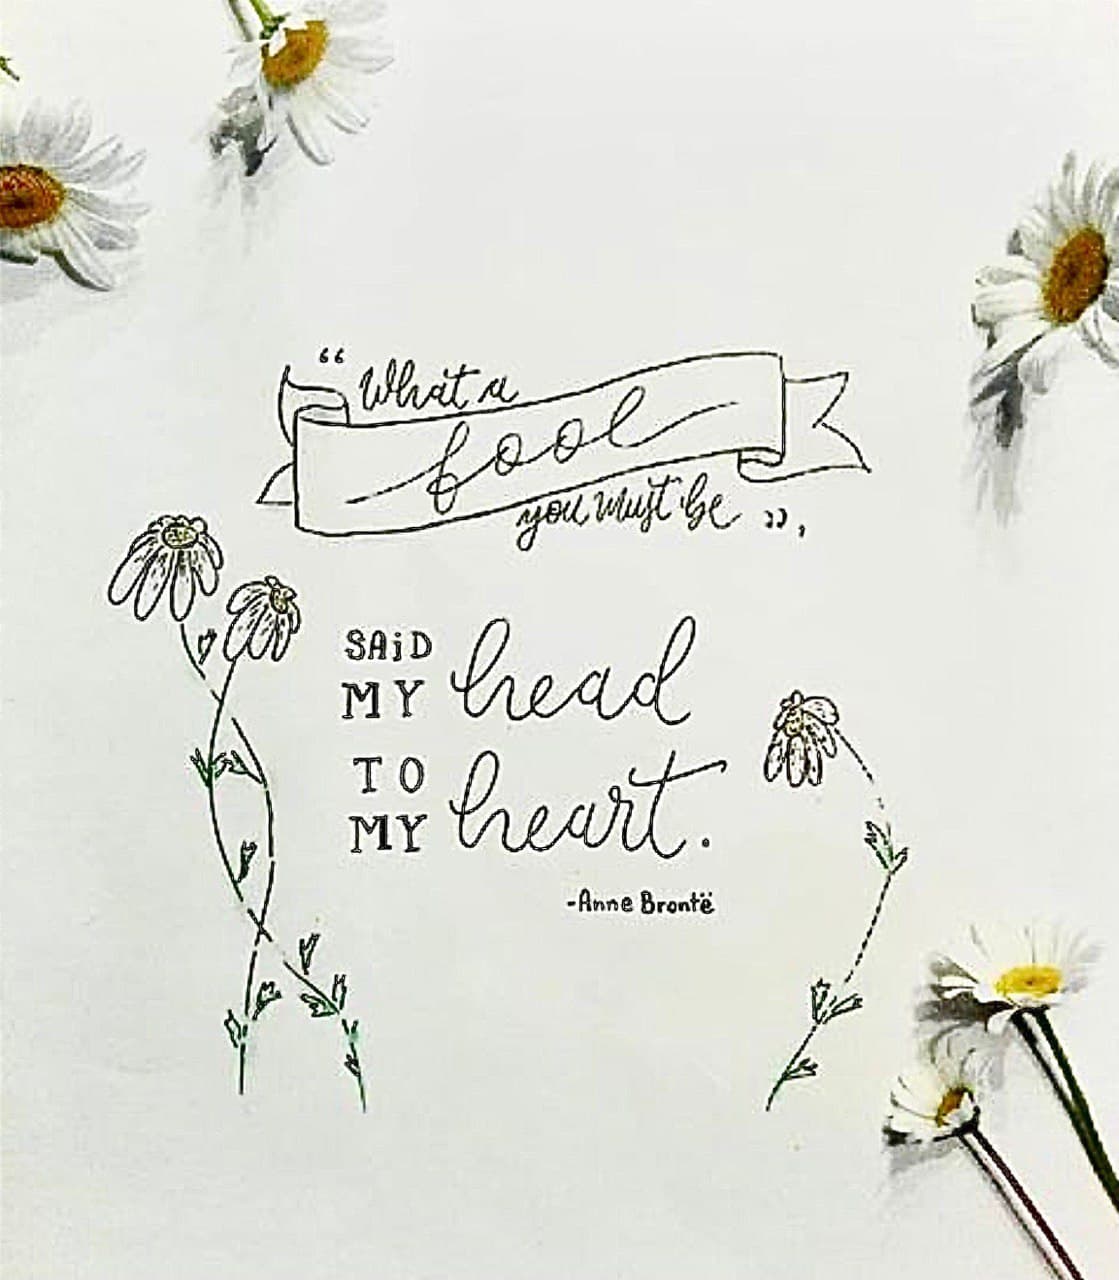 “What a
fool
you must be”,
SAiD
MY head
TO
MY heart.
-Anne Brontë